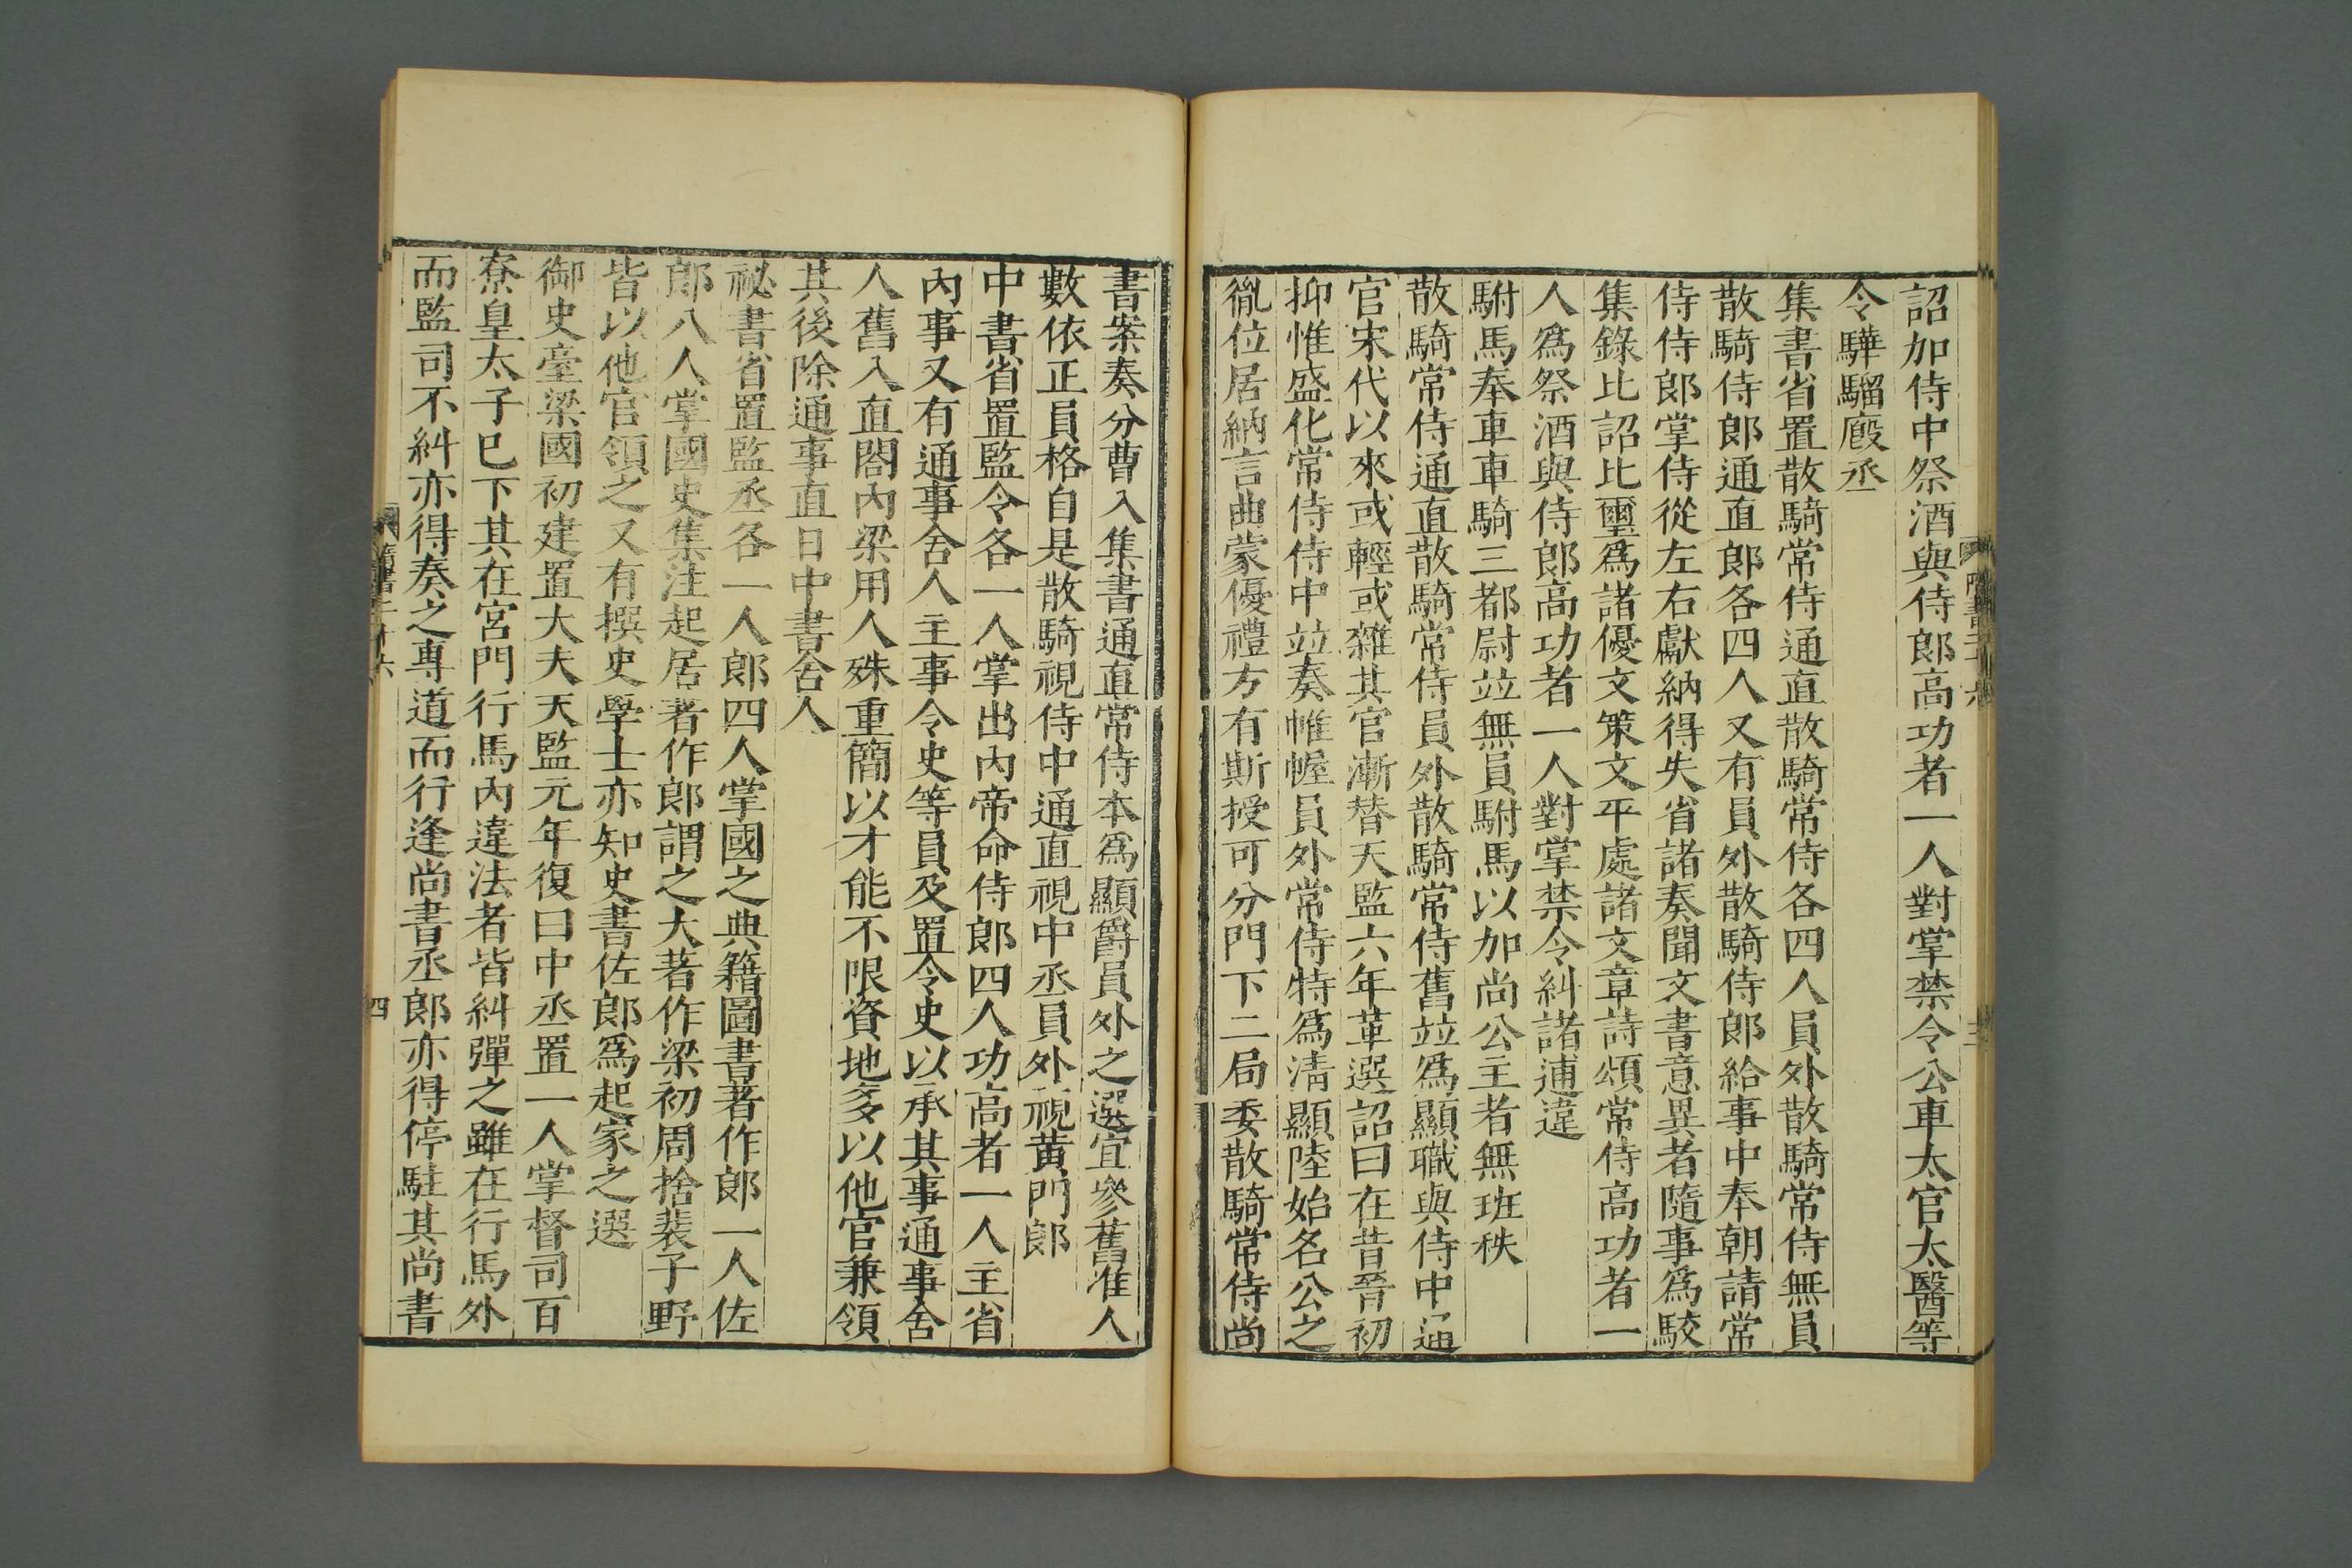 詔加侍中祭酒與侍郎高功者一人對掌禁令公車太官太醫等
令驊騮廄丞
集書省置散騎常侍通直散騎常侍各四人員外散騎常侍無員
散騎侍郎通直郎各四人又有員外散騎侍郎給事中奉朝請常
侍侍郎掌侍從左右獻納得失省諸奏聞文書意異者隨事爲駮
集錄比詔比璽爲諸優文策文平處諸文章詩頌常侍高功者一
人爲祭酒與侍郎高功者一人對掌禁令糾諸逋違
駙馬奉車車騎三都尉竝無員駙馬以加尚公主者無班秩
散騎常侍通直散騎常侍員外散騎常侍舊竝爲顯職與侍中通
官宋代以來或輕或雜其官漸替天監六年革選詔曰在昔晉初
抑惟盛化常侍侍中竝奏帷幄員外常侍特爲淸顯陸始名公之
胤位居納言曲蒙優禮方有斯授可分門下二局委散騎常侍尚
書案奏分曹入集書通直常侍本爲顯爵員外之選宜參舊准人
數依正員格自是散騎視侍中通直視中丞員外視黃門郎
中書省置監令各一人掌出內帝命侍郎四人功高者一人主省
內事又有通事舍人主事令史等員及置令史以承其事通事舍
人舊入直閤內梁用人殊重簡以才能不限資地多以他官兼領
其後除通事直曰中書舍人
祕書省置監丞各一人郎四人掌國之典籍圖書著作郎一人佐
郎八人掌國史集注起居著作郎謂之大著作梁初周捨裴子野
皆以他官領之又有撰史學士亦知史書佐郎爲起家之選
御史臺梁國初建置大夫天監元年復曰中丞置一人掌督司百
寮皇太子已下其在宮門行馬內違法者皆糾彈之雖在行馬外
而監司不糾亦得奏之專道而行逢尚書丞郎亦得停駐其尚書
隋書二十六
四